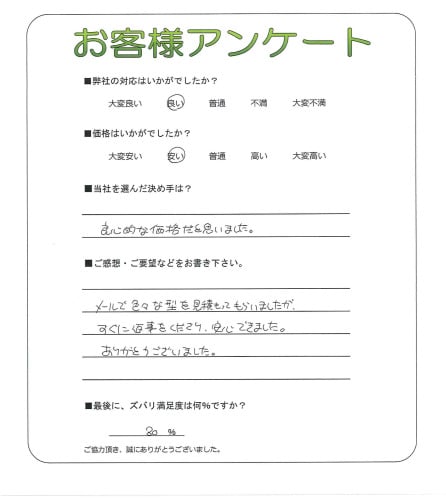 お客様アンケート
■弊社の対応はいかがでしたか？
大変良い 良い 普通 不満 大変不満
■価格はいかがでしたか？
大変安い 安い 普通 高い 大変高い
■当社を選んだ決め手は？
良心的な価格だと思いました。
■ご感想・ご要望などをお書き下さい。
メールで色々な型を見積もってもらいましたが、
すぐに返事をくださり、安心できました。
ありがとうございました。
■最後に、ズバリ満足度は何％ですか？
80 ％
ご協力頂き、誠にありがとうございました。